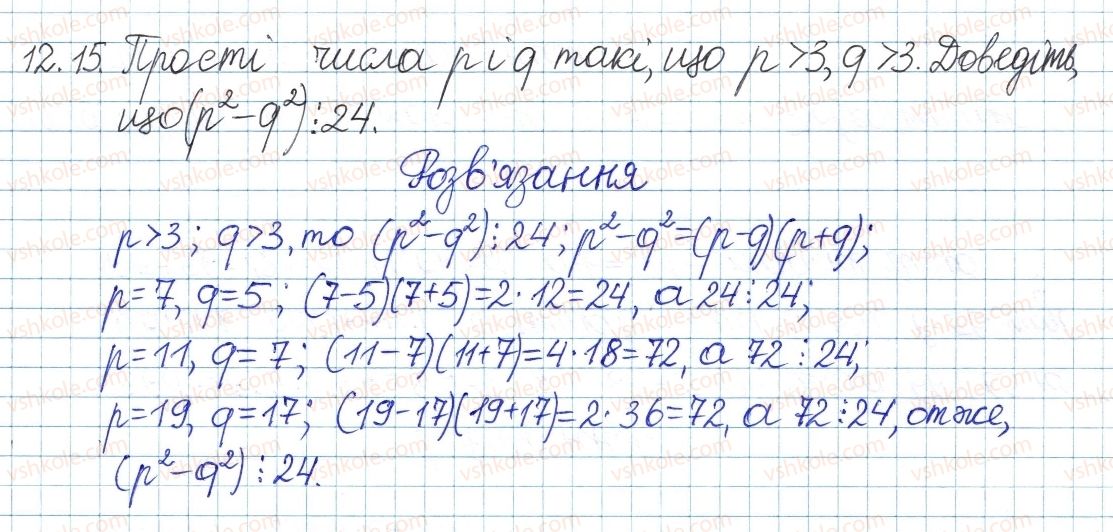 12.15. Прості числа p і q такі, що p >3, q >3. Доведіть,
що (p² - q²) ⋮ 24.
Розв'язання
p >3; q >3, то (p² - q²) ⋮ 24; p² - q² = (p - q)(p + q);
p = 7, q = 5; (7 - 5)(7 + 5) = 2 · 12 = 24, а 24 ⋮ 24;
p = 11, q = 7; (11 - 7)(11 + 7) = 4 · 18 = 72, а 72 ⋮ 24;
p = 19, q = 17; (19 - 17)(19 + 17) = 2 · 36 = 72, а 72 ⋮ 24, отже,
(p² - q²) ⋮ 24.